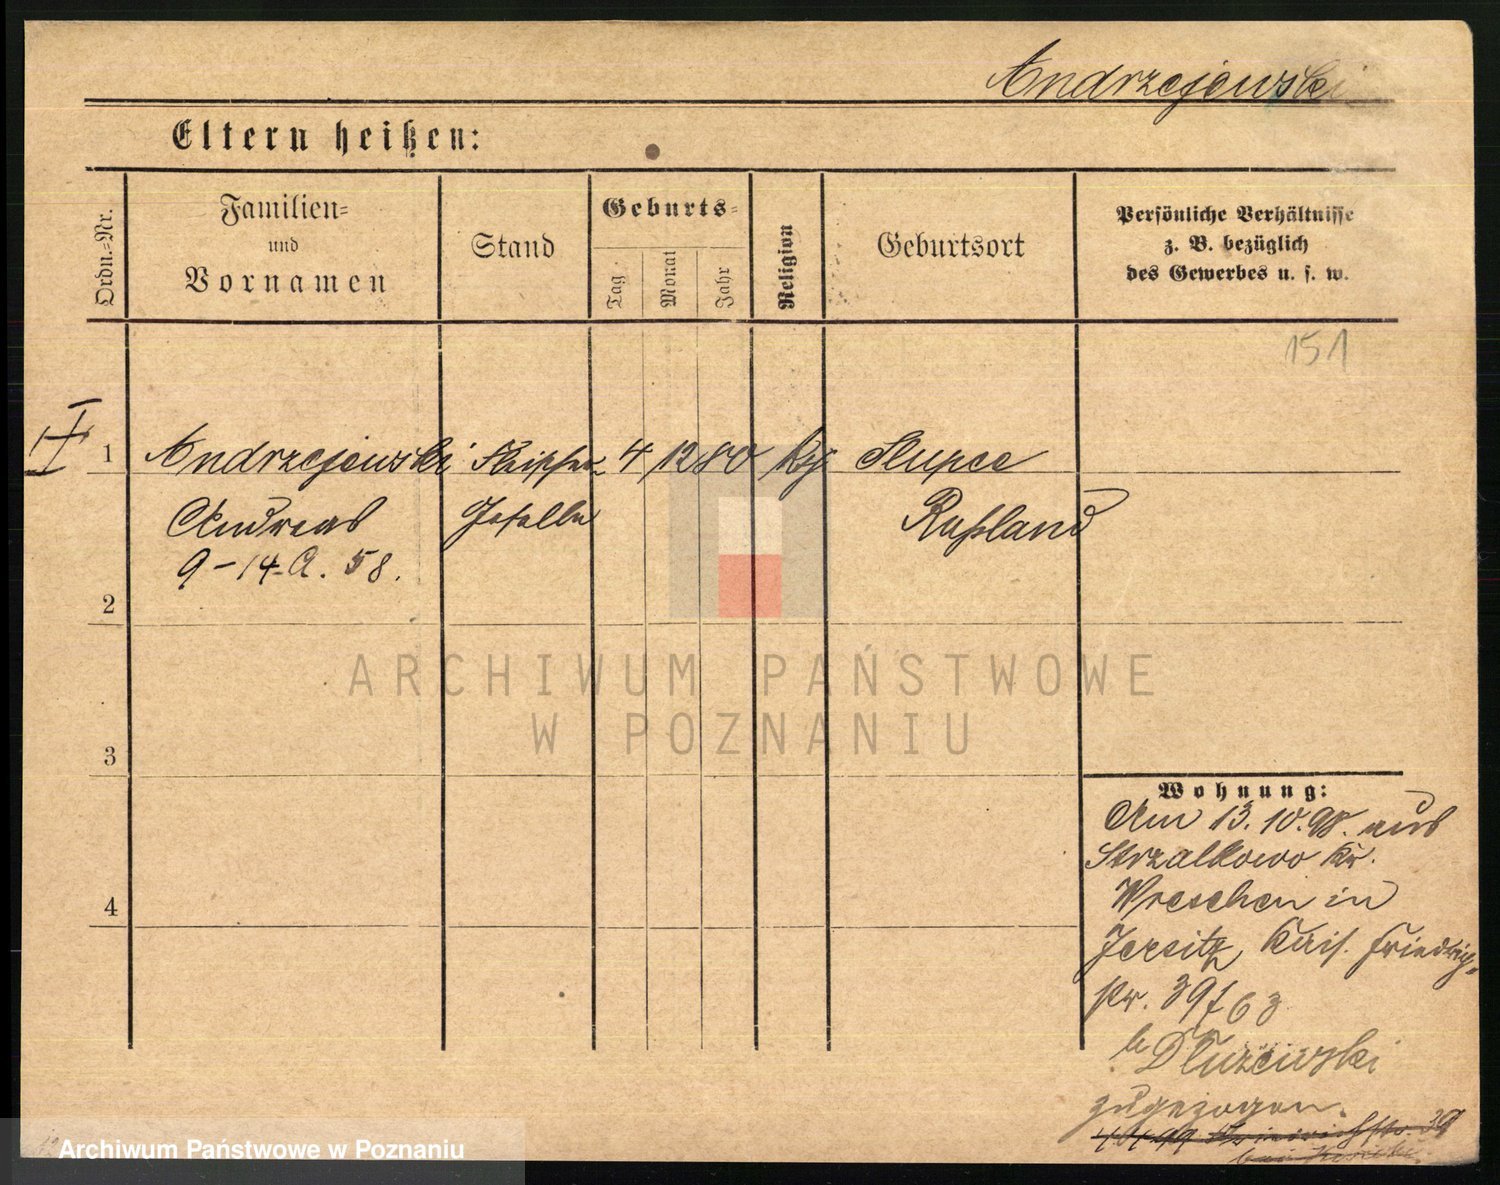 Andrzejewski
Eltern heißen:
Ordn.-Nr.
Familien-
und
Vornamen
Stand
Geburts-
Tag
Monat
Jahr
Religion
Geburtsort
Persönliche Verhältnisse
z. B. bezüglich
des Gewerbes u. s. w.
151
1
Andrzejewski 4 12 80 Slupce
Andreas Geselle Rußland
9-14. A. 58.
2
3
4
ARCHIWUM PAŃSTWOWE
W POZNANIU
Wohnung:
Am 13. 10. 98. aus
Strzalkowo Kr.
Wreschen in
Jersitz, Kais. Friedrich-
str. 39 63
b. Dluzewski
zugezogen.
39
Archiwum Państwowe w Poznaniu